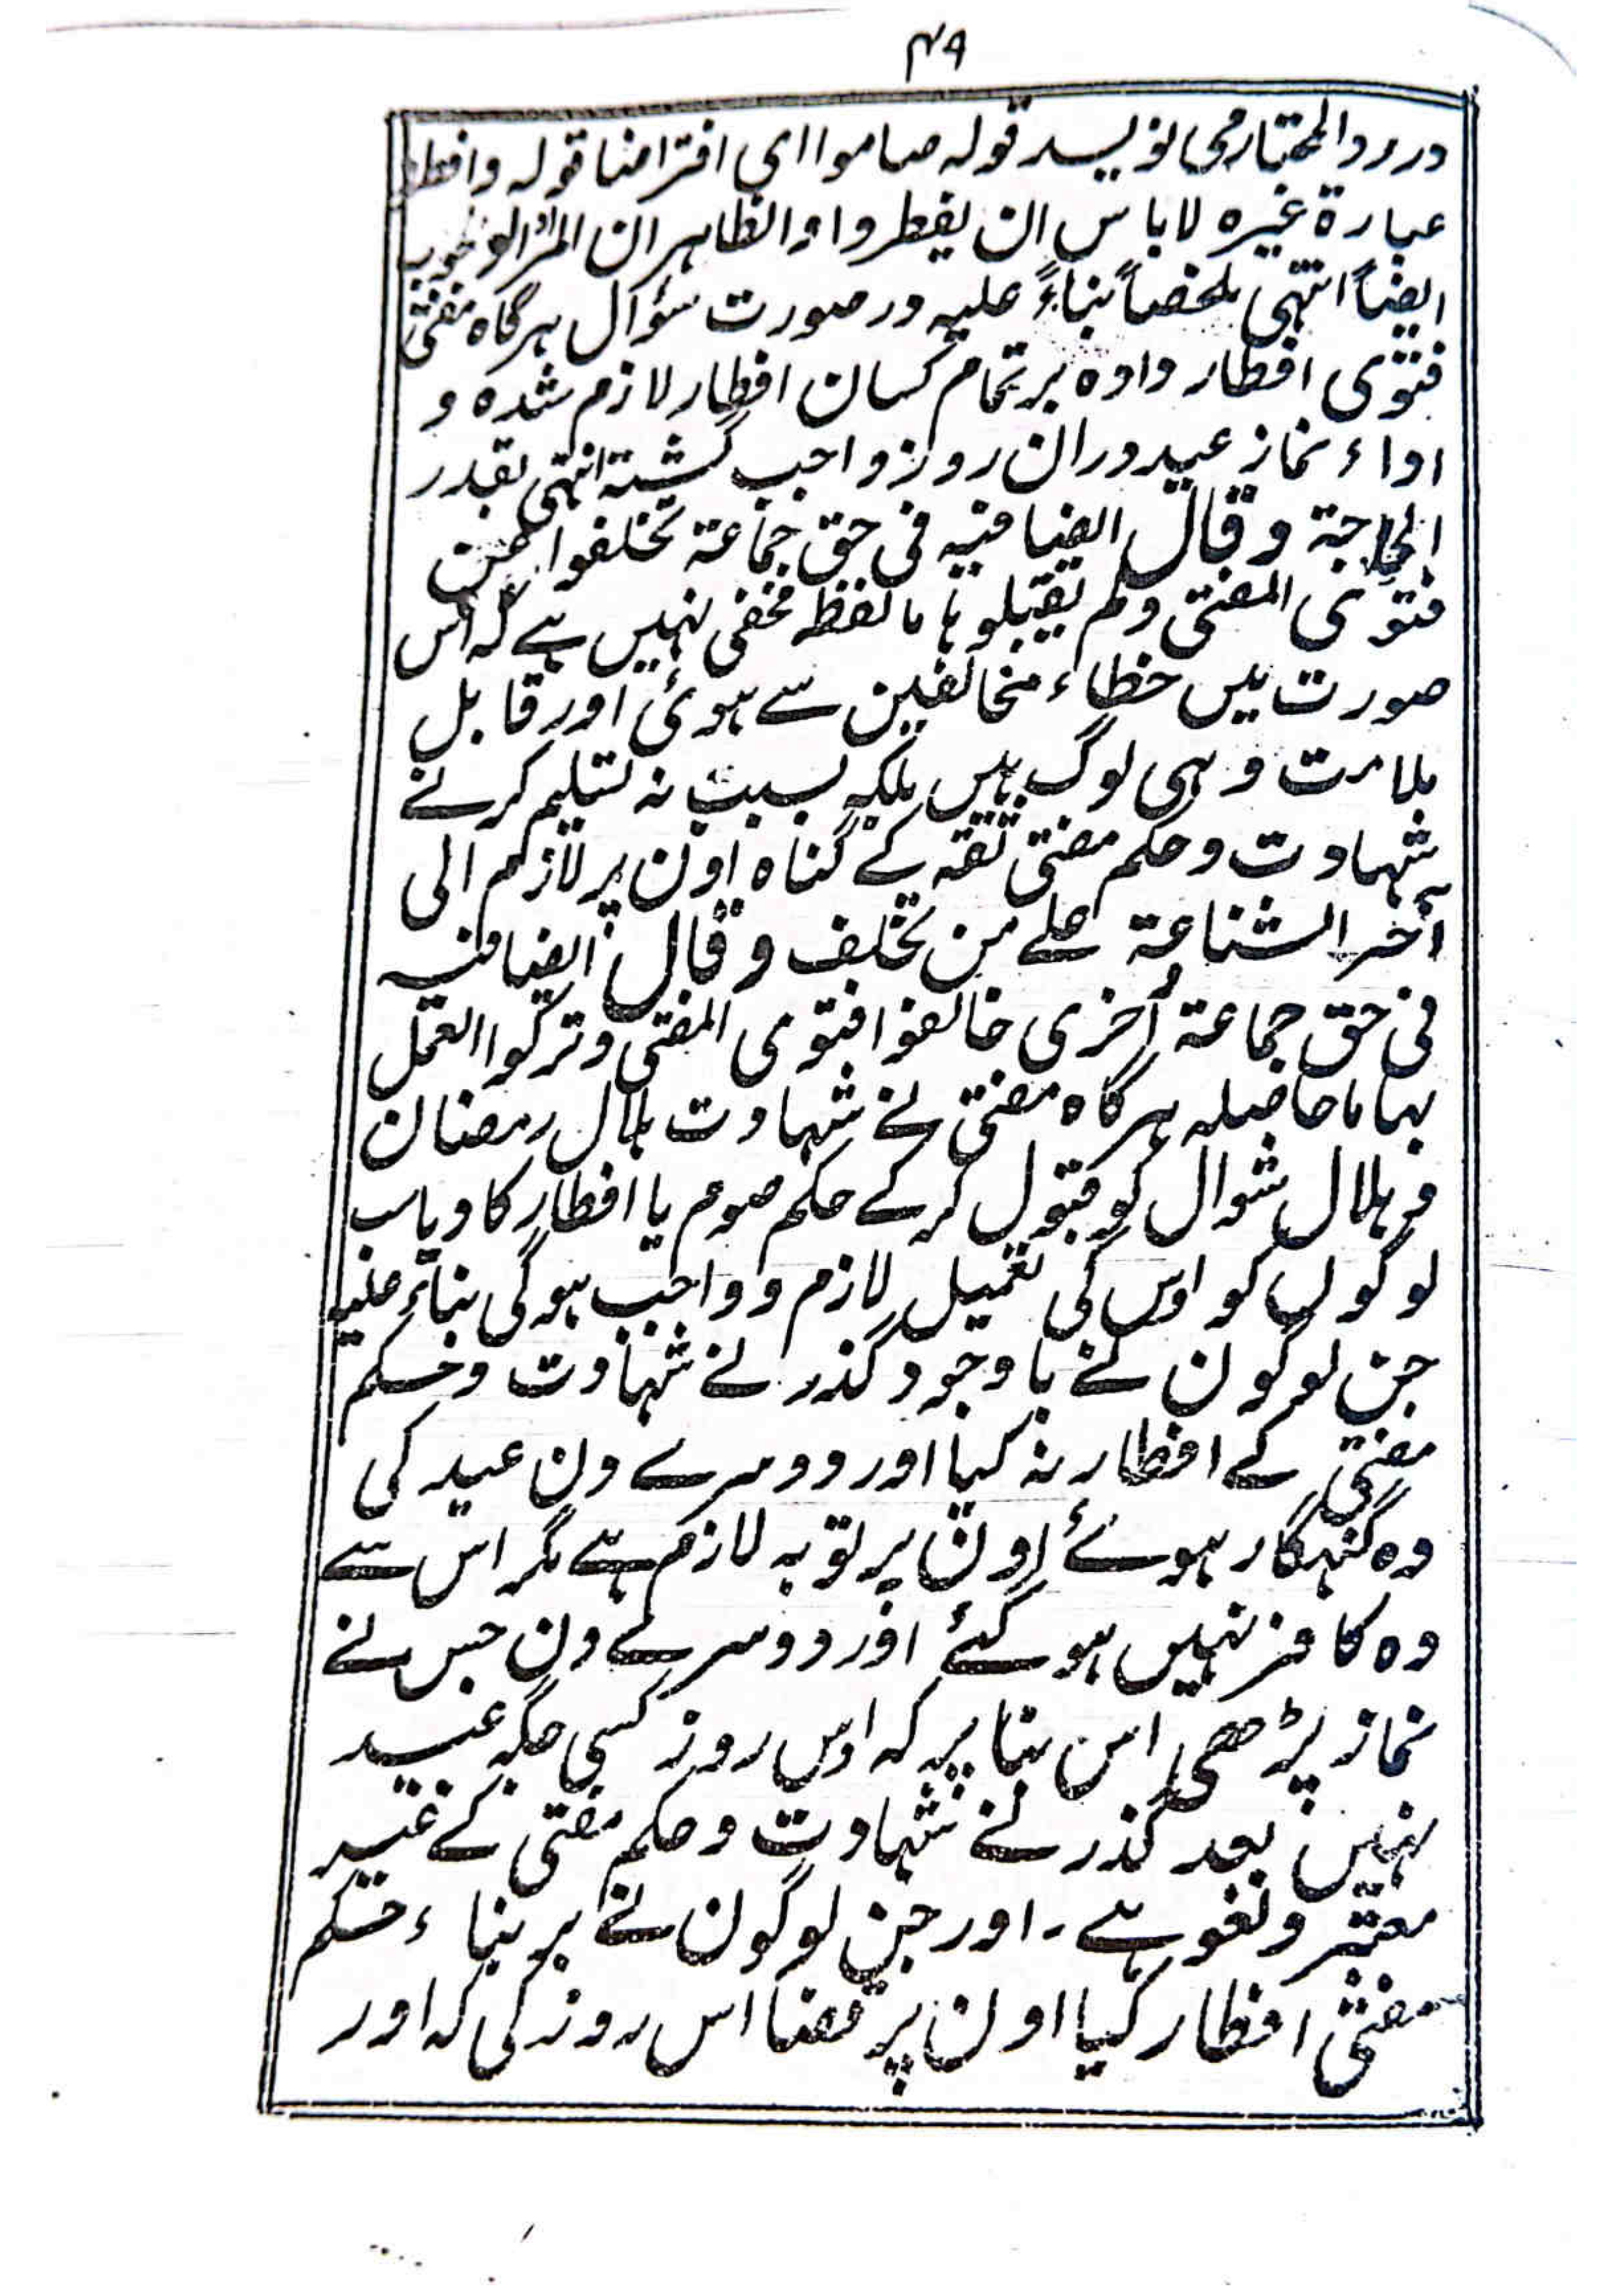 ۴۹
در رد المحتار می نویسد قولہ صاموا ای افتراضا قولہ وافطر
عبارة غیرہ لا باس ان یفطروا والظاهر ان المراد الوجوب
ایضاً انتہی ملخصاً بناءً علیہ در صورت سؤال ہرگاہ مفتی
فتوی افطار دادہ بر تمام کسان افطار لازم شدہ و
اداء نماز عید دران روز واجب گشتہ انتہی بقدر
الحاجۃ وقال ایضا فیہ فی حق جماعۃ تخلفوا عن
فتوی المفتی ولم یقبلوہا ما لفظہ مخفی نہیں ہے کہ اس
صورت میں خطاء مخالفین سے ہوئی اور قابل
ملامت وہی لوگ ہیں بلکہ بسبب نہ تسلیم کرنے
شہادت وحکم مفتی ثقہ کے گناہ اون پر لازم الی
آخر الشناعۃ علے من تخلف وقال ایضا فیہ
فی حق جماعۃ أخری خالفوا فتوی المفتی وترکوا العمل
بہا ما حاصلہ ہرگاہ مفتی نے شہادت ہلال رمضان
و ہلال شوال کو قبول کرکے حکم صوم یا افطار کا دیا سب
لوگوں کو اوس کی تعمیل لازم و واجب ہوگی بناءً علیہ
جن لوگون نے باوجود گذرنے شہادت وحکم
مفتی کے افطار نہ کیا اور دوسرے دن عید کی
وہ گنہگار ہوئے اون پر توبہ لازم ہے مگر اس سے
وہ کافر نہیں ہوگئے اور دوسرے دن جس نے
نماز پڑھی اس بنا پر کہ اوس روز کسی جگہ عید
نہیں بعد گذرنے شہادت وحکم مفتی کے غیر
معتبر و لغو ہے ۔ اور جن لوگون نے بر بناء حکم
مفتی افطار کیا اون پر قضا اس روزہ کی کہ اور